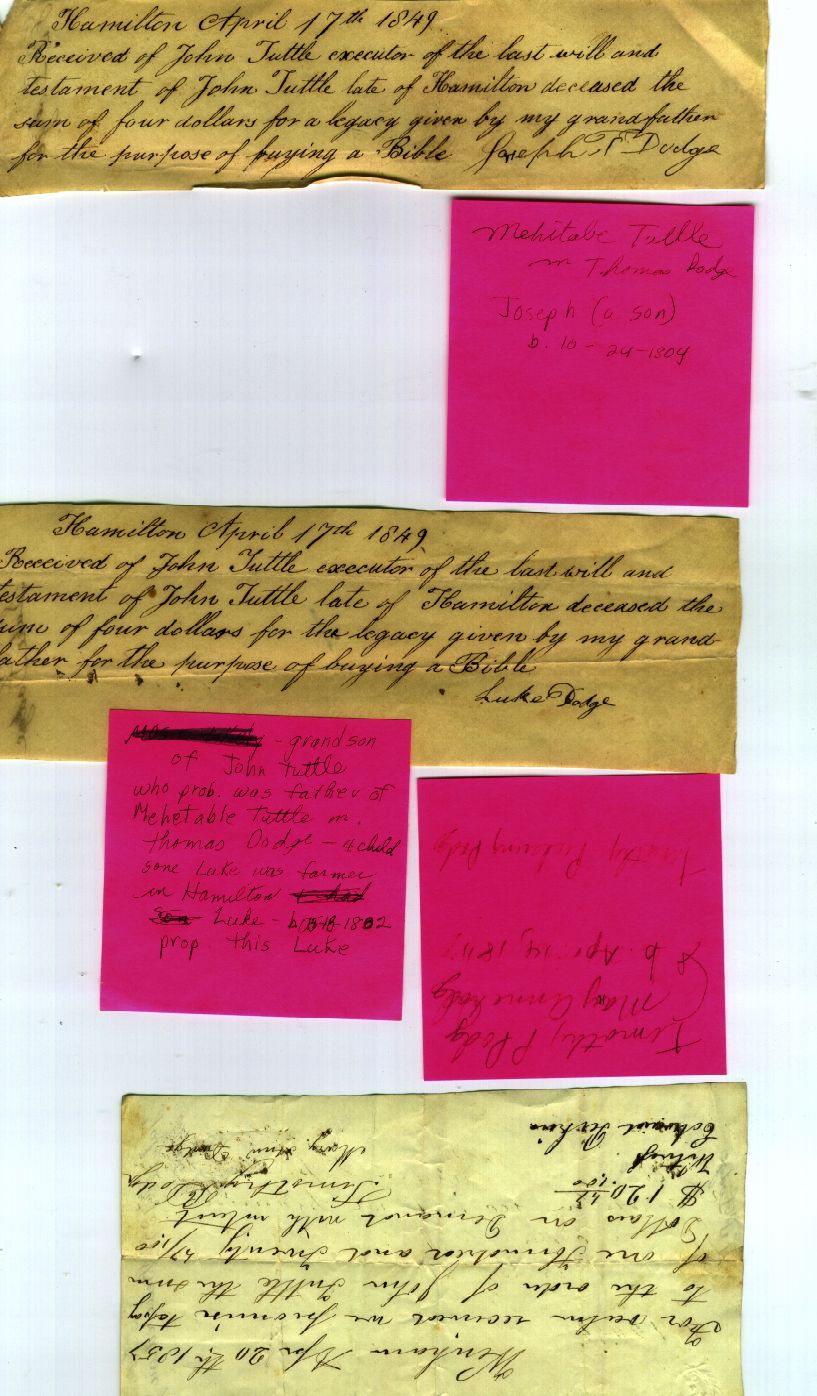 Hamilton April 17th 1849
Received of John Tuttle executor of the last will and
testament of John Tuttle late of Hamilton deceased the
sum of four dollars for a legacy given by my grandfather
for the purpose of buying a Bible Joseph F Dodge
Mehitabe Tuttle
m Thomas Dodge
Joseph (a son)
b. 10-24-1804
Hamilton April 17th 1849
Received of John Tuttle executor of the last will and
testament of John Tuttle late of Hamilton deceased the
sum of four dollars for the legacy given by my grand-
father for the purpose of buying a Bible
Luke Dodge
- grandson
of John Tuttle
who prob. was father of
Mehetable Tuttle m.
Thomas Dodge - 4 child
sone Luke was farmer
in Hamilton
Luke - b 1802
prop this Luke
Timothy P Dodg
Mary Anne Dodg
& b. Apr. 14, 18
Timothy Pickering Dodg
Wenham Apr 20th 1857
For value received we promise to pay
to the order of John Tuttle the sum
of one Hundred and Twenty 57/100
Dollars on Demand with interest
$120 57/100 Timothy P Dodge
Witness Mary Ann Dodge
Edward Perkins